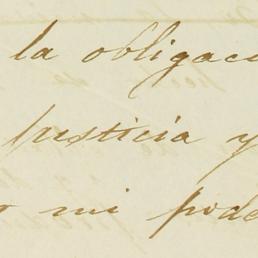 la obligac
justicia y
mi pode